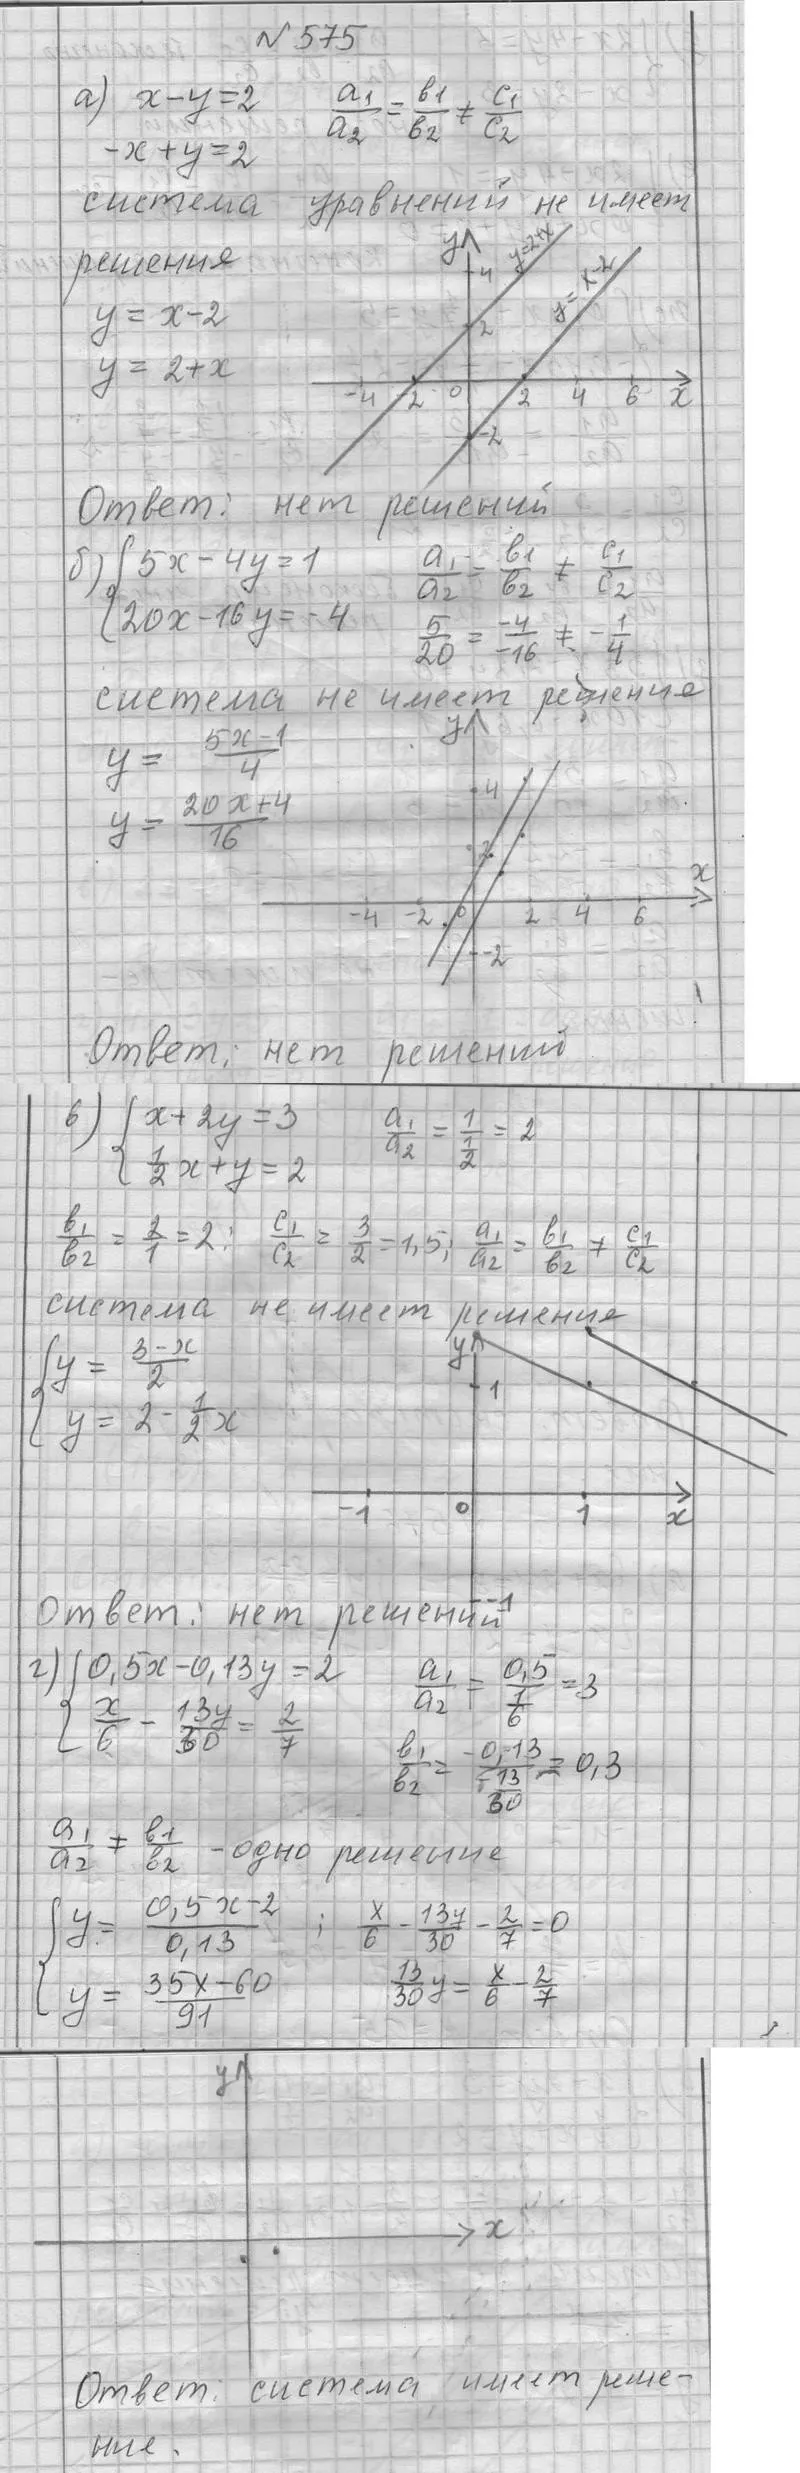 №575
а) x-y=2   a1/a2 = в1/в2 ≠ c1/c2
-x+y=2
система уравнений не имеет
решения
y = x-2
y = 2+x
y
4
y=2+x
y=x-2
2
-4 -2 0 2 4 6 x
-2
Ответ: нет решений
б) { 5x-4y=1   a1/a2 = в1/в2 ≠ c1/c2
20x-16y=-4   5/20 = -4/-16 ≠ -1/4
система не имеет решение
y = (5x-1)/4
y = (20x+4)/16
y
4
2
x
-4 -2 0 2 4 6
-2
Ответ: нет решений
в) { x+2y=3   a1/a2 = 1/(1/2) = 2
1/2 x+y=2
в1/в2 = 2/1 = 2; c1/c2 = 3/2 = 1,5; a1/a2 = в1/в2 ≠ c1/c2
система не имеет решение
{ y = (3-x)/2
y = 2 - 1/2 x
y
1
-1 0 1 x
-1
Ответ: нет решений
г) { 0,5x-0,13y=2   a1/a2 = 0,5/(1/6) = 3
x/6 - 13y/30 = 2/7
в1/в2 = -0,13/(-13/30) = 0,3
a1/a2 ≠ в1/в2 - одно решение
{ y = (0,5x-2)/0,13 ; x/6 - 13y/30 - 2/7 = 0
y = (35x-60)/91   13/30 y = x/6 - 2/7
y
x
Ответ: система имеет реше-
ние.